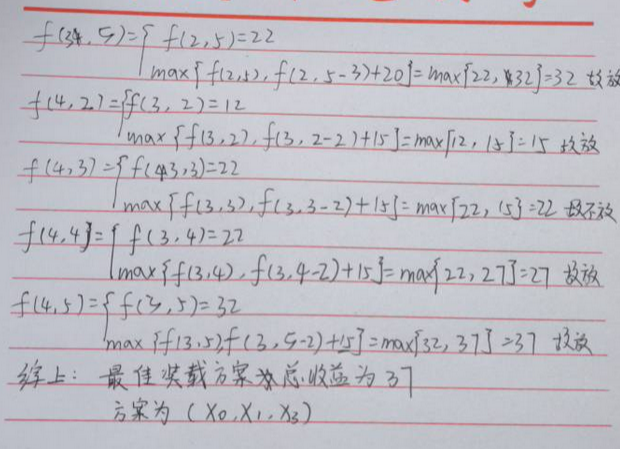 f(3, 5)={ f(2,5)=22
max{f(2,5), f(2, 5-3)+20}=max{22, 32}=32 故放
f(4, 2)={f(3, 2)=12
max{f(3,2), f(3, 2-2)+15}=max{12, 15}=15 故放
f(4,3)={f(3,3)=22
max{f(3,3), f(3,3-2)+15}=max{22, 15}=22 故不放
f(4,4)={ f(3,4)=22
max{f(3,4), f(3,4-2)+15}=max{22, 27}=27 故放
f(4,5)={f(3,5)=32
max{f(3,5),f(3,5-2)+15}=max{32, 37}=37 故放
综上: 最佳装载方案总收益为37
方案为 (X0, X1, X3)